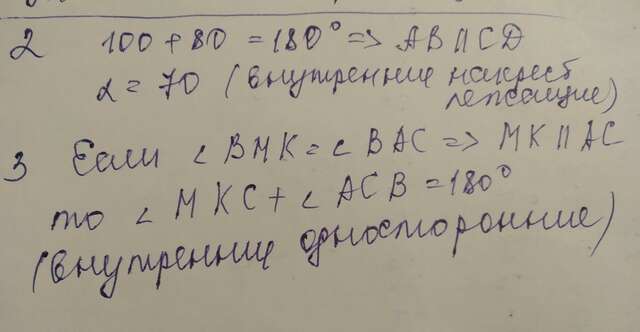 2 100 + 80 = 180° => AB II CD
α = 70 (внутренние накрест
лежащие)
3 Если ∠ BMK = ∠ BAC => MK II AC
то ∠ MKC + ∠ ACB = 180°
(внутренние односторонние)